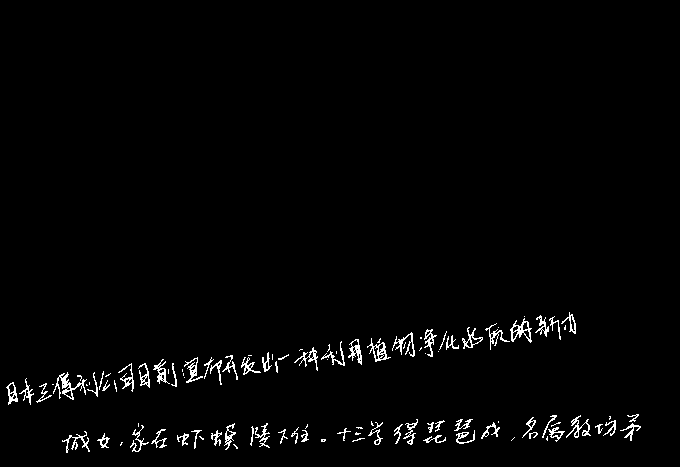 日本三得利公司日前宣布开发出一种利用植物净化水质的新方
城女，家在虾蟆陵下住。十三学得琵琶成，名属教坊第